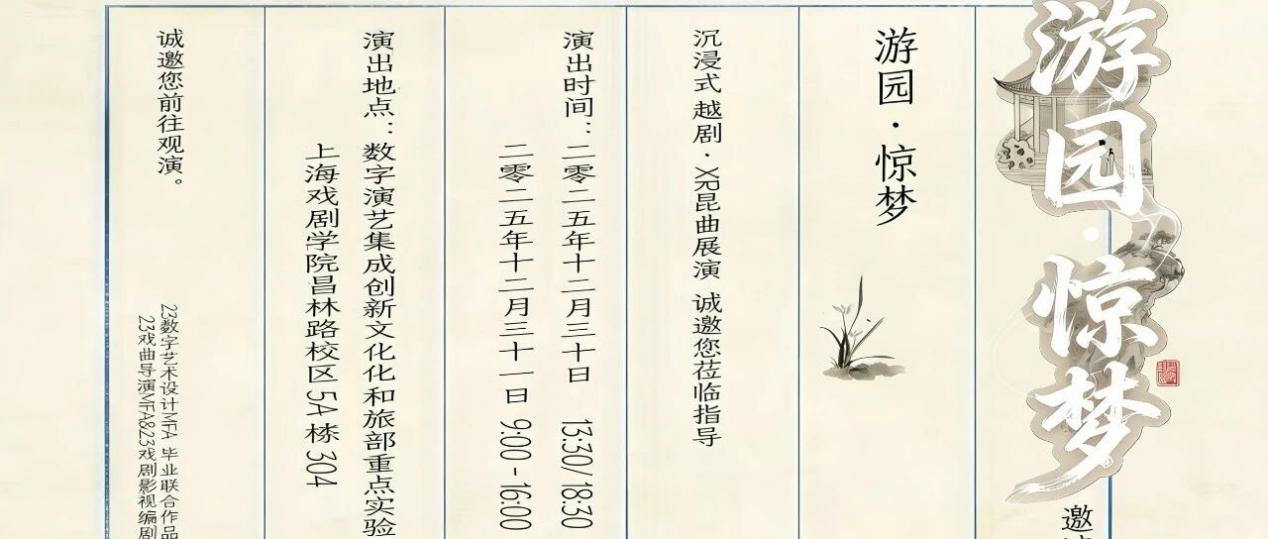 游园·惊梦
邀
游园·惊梦
沉浸式 越剧·XR昆曲展演 诚邀您莅临指导
演出时间：二零二五年十二月三十日 13:30/18:30
二零二五年十二月三十一日 9:00-16:00
演出地点：数字演艺集成创新文化和旅部重点实验
上海戏剧学院昌林路校区 5A 栋 304
诚邀您前往观演。
23数字艺术设计MFA 毕业联合作品
23戏曲导演MFA&23戏剧影视编剧